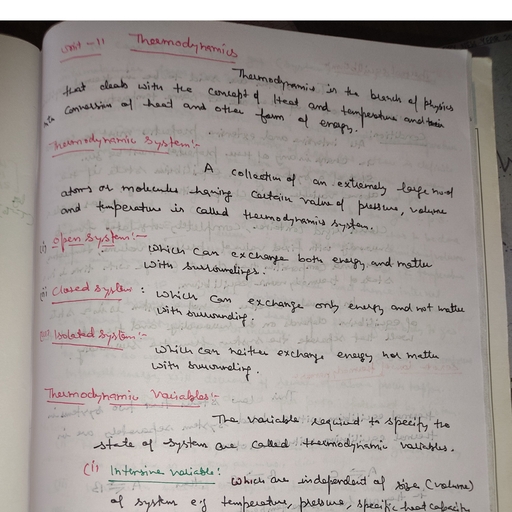 Unit-11 Thermodynamics
Thermodynamics is the branch of physics
that deals with the concept of Heat and temperature and their
conversion of heat and other form of energy.
Thermodynamic System:-
A collection of an extremely large no of
atoms or molecules having certain value of pressure, volume
and temperature is called thermodynamics system.
(i) Open system:-
Which can exchange both energy and matter
with surroundings.
(ii) Closed System :
Which can exchange only energy and not matter
with surrounding.
(iii) Isolated System:-
Which can neither exchange energy nor matter
with surrounding.
Thermodynamic Variables:-
The variable required to specify the
state of system are called thermodynamic variables.
(i) Intensive variable:
Which are independent of size (volume)
of system e.g temperature, pressure, specific heat capacity